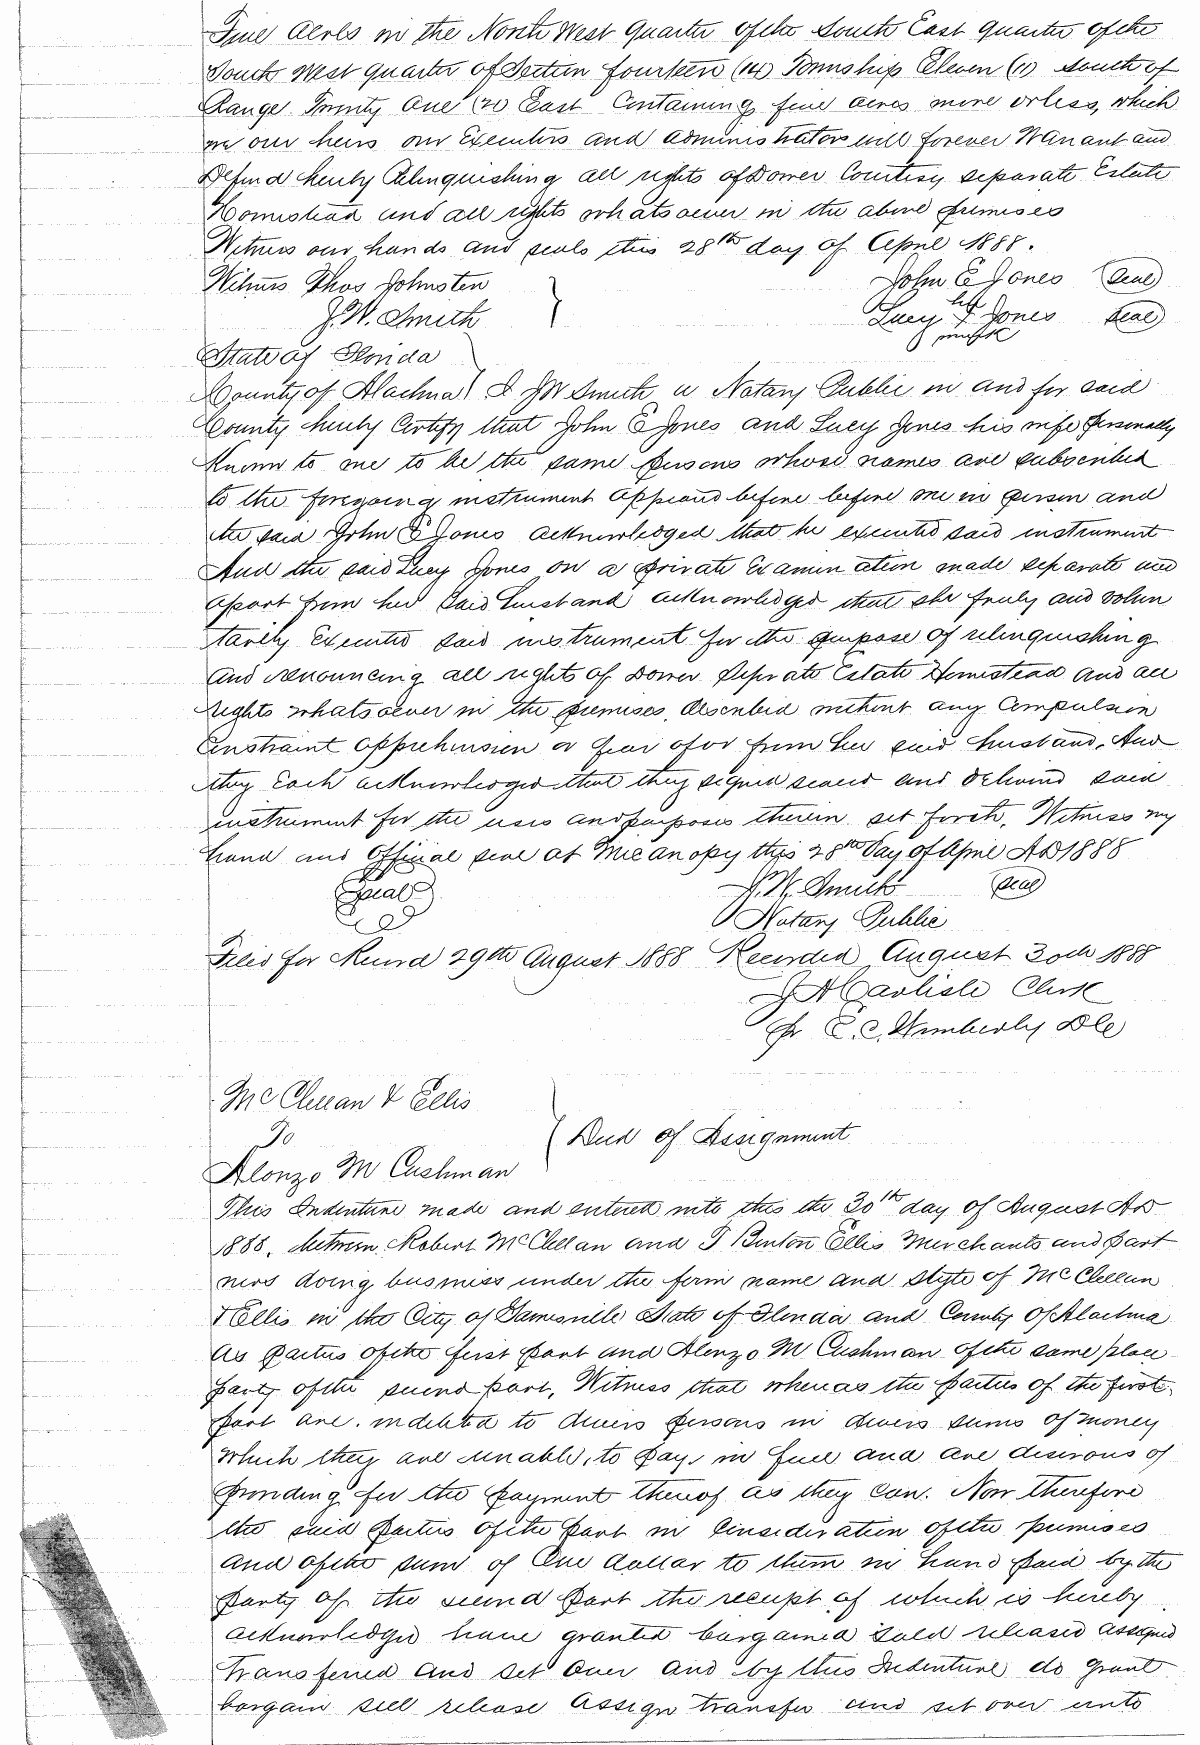 Five Acres in the North West Quarter of the South East Quarter of the
South West quarter of Section fourteen (14) Township Eleven (11) South of
Range Twenty One (21) East Containing five acres more or less, which
we our heirs our Executors and administrators will forever Warrant and
Defend hereby Relinquishing all rights of Dower Courtesy separate Estate
Homestead and all rights whatsoever in the above premises
Witness our hands and seals this 28th day of April 1888.
Witness Thos Johnston } John E Jones (seal)
J. W. Smith Lucy her X mark Jones (seal)
State of Florida
County of Alachua } I JW Smith a Notary Public in and for said
County hereby Certify that John E Jones and Lucy Jones his wife personally
known to me to be the same persons whose names are subscribed
to the foregoing instrument appeared before before me in person and
the said John E Jones acknowledged that he executed said instrument
And the said Lucy Jones on a private Examination made separate and
apart from her said husband acknowledged that she freely and volun
tarily Executed said instrument for the purpose of relinquishing
and renouncing all rights of Dower Seprate Estate Homestead and all
rights whatsoever in the premises, described without any Compulsion
Constraint apprehension or fear of or from her said husband, And
they Each acknowledged that they signed sealed and delivered said
instrument for the uses and purposes therein set forth. Witness my
hand and Official seal at Micanopy this 28th Day of April AD 1888
(Seal) J. W. Smith (seal)
Notary Public
Filed for Record 29th August 1888 Recorded August 30th 1888
J A Carlisle Clerk
pr E. C. Wimberly DC
McClellan & Ellis
To } Deed of Assignment
Alonzo M Cushman
This Indenture made and entered into this the 30th day of August AD
1888, between Robert McClellan and T Benton Ellis Merchants and part
ners doing business under the firm name and style of McClellan
& Ellis in the City of Gainesville State of Florida and County of Alachua
As parties of the first part and Alonzo M Cushman of the same place
party of the second part, Witness that whereas the parties of the first
part are indebted to divers persons in divers sums of money
which they are unable, to pay, in full and are desirous of
providing for the payment thereof as they can. Now therefore
the said parties of the part in Consideration of the premises
and of the sum of One dollar to them in hand paid by the
party of the second part the receipt of which is hereby
acknowledged have granted bargained sold released assigned
transferred and set over and by this Indenture do grant
bargain sell release assign transfer and set over unto